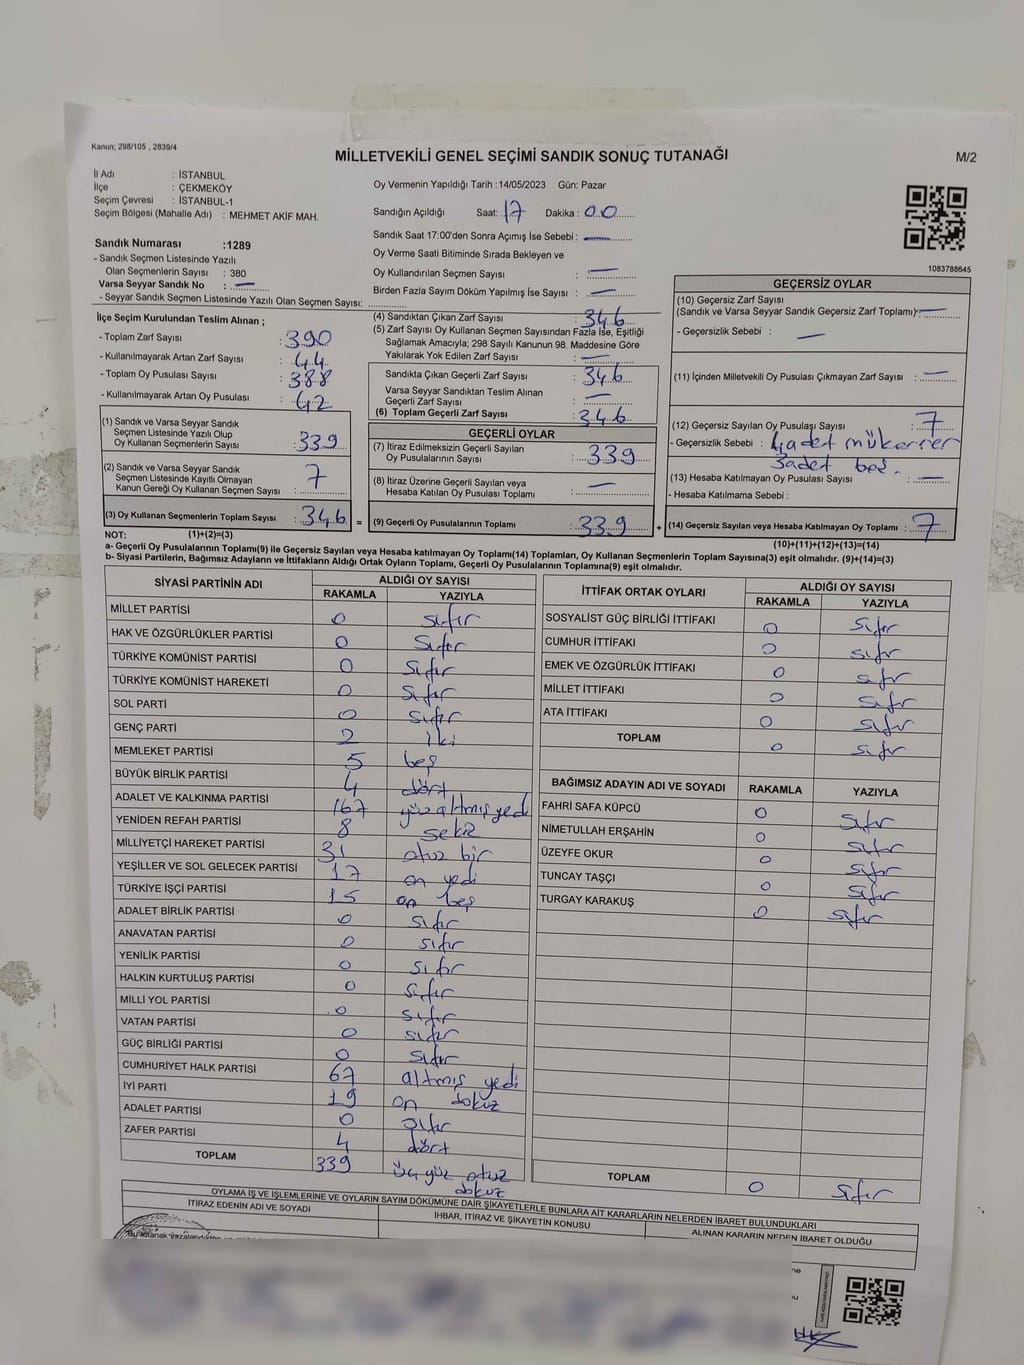 Kanun; 298/105 , 2839/4
MİLLETVEKİLİ GENEL SEÇİMİ SANDIK SONUÇ TUTANAĞI
M/2
İl Adı : İSTANBUL
İlçe : ÇEKMEKÖY
Seçim Çevresi : İSTANBUL-1
Seçim Bölgesi (Mahalle Adı) : MEHMET AKİF MAH.
Sandık Numarası :1289
- Sandık Seçmen Listesinde Yazılı
Olan Seçmenlerin Sayısı : 380
Varsa Seyyar Sandık No : —
- Seyyar Sandık Seçmen Listesinde Yazılı Olan Seçmen Sayısı:
Oy Vermenin Yapıldığı Tarih :14/05/2023 Gün: Pazar
Sandığın Açıldığı Saat: 17 Dakika : 00
Sandık Saat 17:00'den Sonra Açımış İse Sebebi : —
Oy Verme Saati Bitiminde Sırada Bekleyen ve
Oy Kullandırılan Seçmen Sayısı : —
Birden Fazla Sayım Döküm Yapılmış İse Sayısı : —
1083788645
İlçe Seçim Kurulundan Teslim Alınan ;
- Toplam Zarf Sayısı : 390
- Kullanılmayarak Artan Zarf Sayısı : 44
- Toplam Oy Pusulası Sayısı : 388
- Kullanılmayarak Artan Oy Pusulası : 42
(1) Sandık ve Varsa Seyyar Sandık
Seçmen Listesinde Yazılı Olup
Oy Kullanan Seçmenlerin Sayısı : 339
(2) Sandık ve Varsa Seyyar Sandık
Seçmen Listesinde Kayıtlı Olmayan
Kanun Gereği Oy Kullanan Seçmen Sayısı : 7
(3) Oy Kullanan Seçmenlerin Toplam Sayısı : 346 =
(4) Sandıktan Çıkan Zarf Sayısı : 346
(5) Zarf Sayısı Oy Kullanan Seçmen Sayısından Fazla İse, Eşitliği
Sağlamak Amacıyla; 298 Sayılı Kanunun 98. Maddesine Göre
Yakılarak Yok Edilen Zarf Sayısı : —
Sandıkta Çıkan Geçerli Zarf Sayısı : 346
Varsa Seyyar Sandıktan Teslim Alınan
Geçerli Zarf Sayısı : —
(6) Toplam Geçerli Zarf Sayısı : 346
GEÇERLİ OYLAR
(7) İtiraz Edilmeksizin Geçerli Sayılan
Oy Pusulalarının Sayısı : 339
(8) İtiraz Üzerine Geçerli Sayılan veya
Hesaba Katılan Oy Pusulası Toplamı : —
(9) Geçerli Oy Pusulalarının Toplamı : 339 +
GEÇERSİZ OYLAR
(10) Geçersiz Zarf Sayısı
(Sandık ve Varsa Seyyar Sandık Geçersiz Zarf Toplamı): —
- Geçersizlik Sebebi : —
(11) İçinden Milletvekili Oy Pusulası Çıkmayan Zarf Sayısı : —
(12) Geçersiz Sayılan Oy Pusulası Sayısı : 7
- Geçersizlik Sebebi : 4 adet mükerrer
3 adet boş.
(13) Hesaba Katılmayan Oy Pusulası Sayısı : —
- Hesaba Katılmama Sebebi :
(14) Geçersiz Sayılan veya Hesaba Katılmayan Oy Toplamı : 7
NOT: (1)+(2)=(3) (10)+(11)+(12)+(13)=(14)
a- Geçerli Oy Pusulalarının Toplamı(9) ile Geçersiz Sayılan veya Hesaba katılmayan Oy Toplamı(14) Toplamları, Oy Kullanan Seçmenlerin Toplam Sayısına(3) eşit olmalıdır. (9)+(14)=(3)
b- Siyasi Partilerin, Bağımsız Adayların ve İttifakların Aldığı Ortak Oyların Toplamı, Geçerli Oy Pusulalarının Toplamına(9) eşit olmalıdır.
SİYASİ PARTİNİN ADI ALDIĞI OY SAYISI
RAKAMLA YAZIYLA
MİLLET PARTİSİ 0 sıfır
HAK VE ÖZGÜRLÜKLER PARTİSİ 0 sıfır
TÜRKİYE KOMÜNİST PARTİSİ 0 sıfır
TÜRKİYE KOMÜNİST HAREKETİ 0 sıfır
SOL PARTİ 0 sıfır
GENÇ PARTİ 2 iki
MEMLEKET PARTİSİ 5 beş
BÜYÜK BİRLİK PARTİSİ 4 dört
ADALET VE KALKINMA PARTİSİ 167 yüz altmış yedi
YENİDEN REFAH PARTİSİ 8 sekiz
MİLLİYETÇİ HAREKET PARTİSİ 31 otuz bir
YEŞİLLER VE SOL GELECEK PARTİSİ 17 on yedi
TÜRKİYE İŞÇİ PARTİSİ 15 on beş
ADALET BİRLİK PARTİSİ 0 sıfır
ANAVATAN PARTİSİ 0 sıfır
YENİLİK PARTİSİ 0 sıfır
HALKIN KURTULUŞ PARTİSİ 0 sıfır
MİLLİ YOL PARTİSİ 0 sıfır
VATAN PARTİSİ 0 sıfır
GÜÇ BİRLİĞİ PARTİSİ 0 sıfır
CUMHURİYET HALK PARTİSİ 67 altmış yedi
İYİ PARTİ 19 on dokuz
ADALET PARTİSİ 0 sıfır
ZAFER PARTİSİ 4 dört
TOPLAM 339 üç yüz otuz
dokuz
İTTİFAK ORTAK OYLARI ALDIĞI OY SAYISI
RAKAMLA YAZIYLA
SOSYALİST GÜÇ BİRLİĞİ İTTİFAKI 0 sıfır
CUMHUR İTTİFAKI 0 sıfır
EMEK VE ÖZGÜRLÜK İTTİFAKI 0 sıfır
MİLLET İTTİFAKI 0 sıfır
ATA İTTİFAKI 0 sıfır
TOPLAM 0 sıfır
BAĞIMSIZ ADAYIN ADI VE SOYADI RAKAMLA YAZIYLA
FAHRİ SAFA KÜPCÜ 0 sıfır
NİMETULLAH ERŞAHİN 0 sıfır
ÜZEYFE OKUR 0 sıfır
TUNCAY TAŞÇI 0 sıfır
TURGAY KARAKUŞ 0 sıfır
TOPLAM 0 sıfır
OYLAMA İŞ VE İŞLEMLERİNE VE OYLARIN SAYIM DÖKÜMÜNE DAİR ŞİKAYETLERLE BUNLARA AİT KARARLARIN NELERDEN İBARET BULUNDUKLARI
İTİRAZ EDENİN ADI VE SOYADI İHBAR, İTİRAZ VE ŞİKAYETİN KONUSU ALINAN KARARIN NEDEN İBARET OLDUĞU